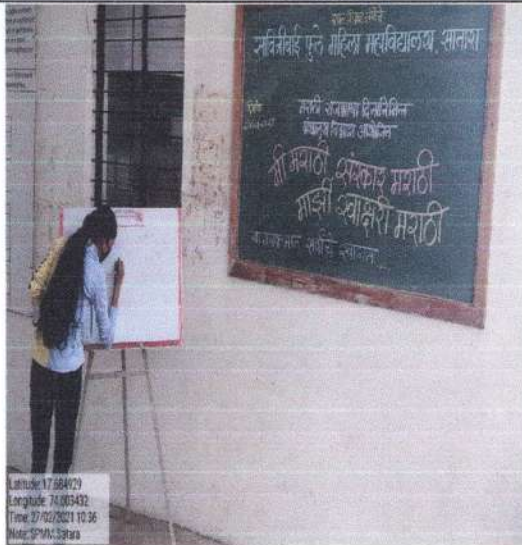 सावित्रीबाई फुले महिला महाविद्यालय, सातारा
मराठी राजभाषा दिनानिमित्त
ग्रंथालय विभाग आयोजित
मी मराठी संस्कार मराठी
माझी स्वाक्षरी मराठी
सर्वांचे स्वागत
Latitude: 17.684929
Longitude: 74.003432
Time: 27/02/2021 10:36
Note: SPMM Satara